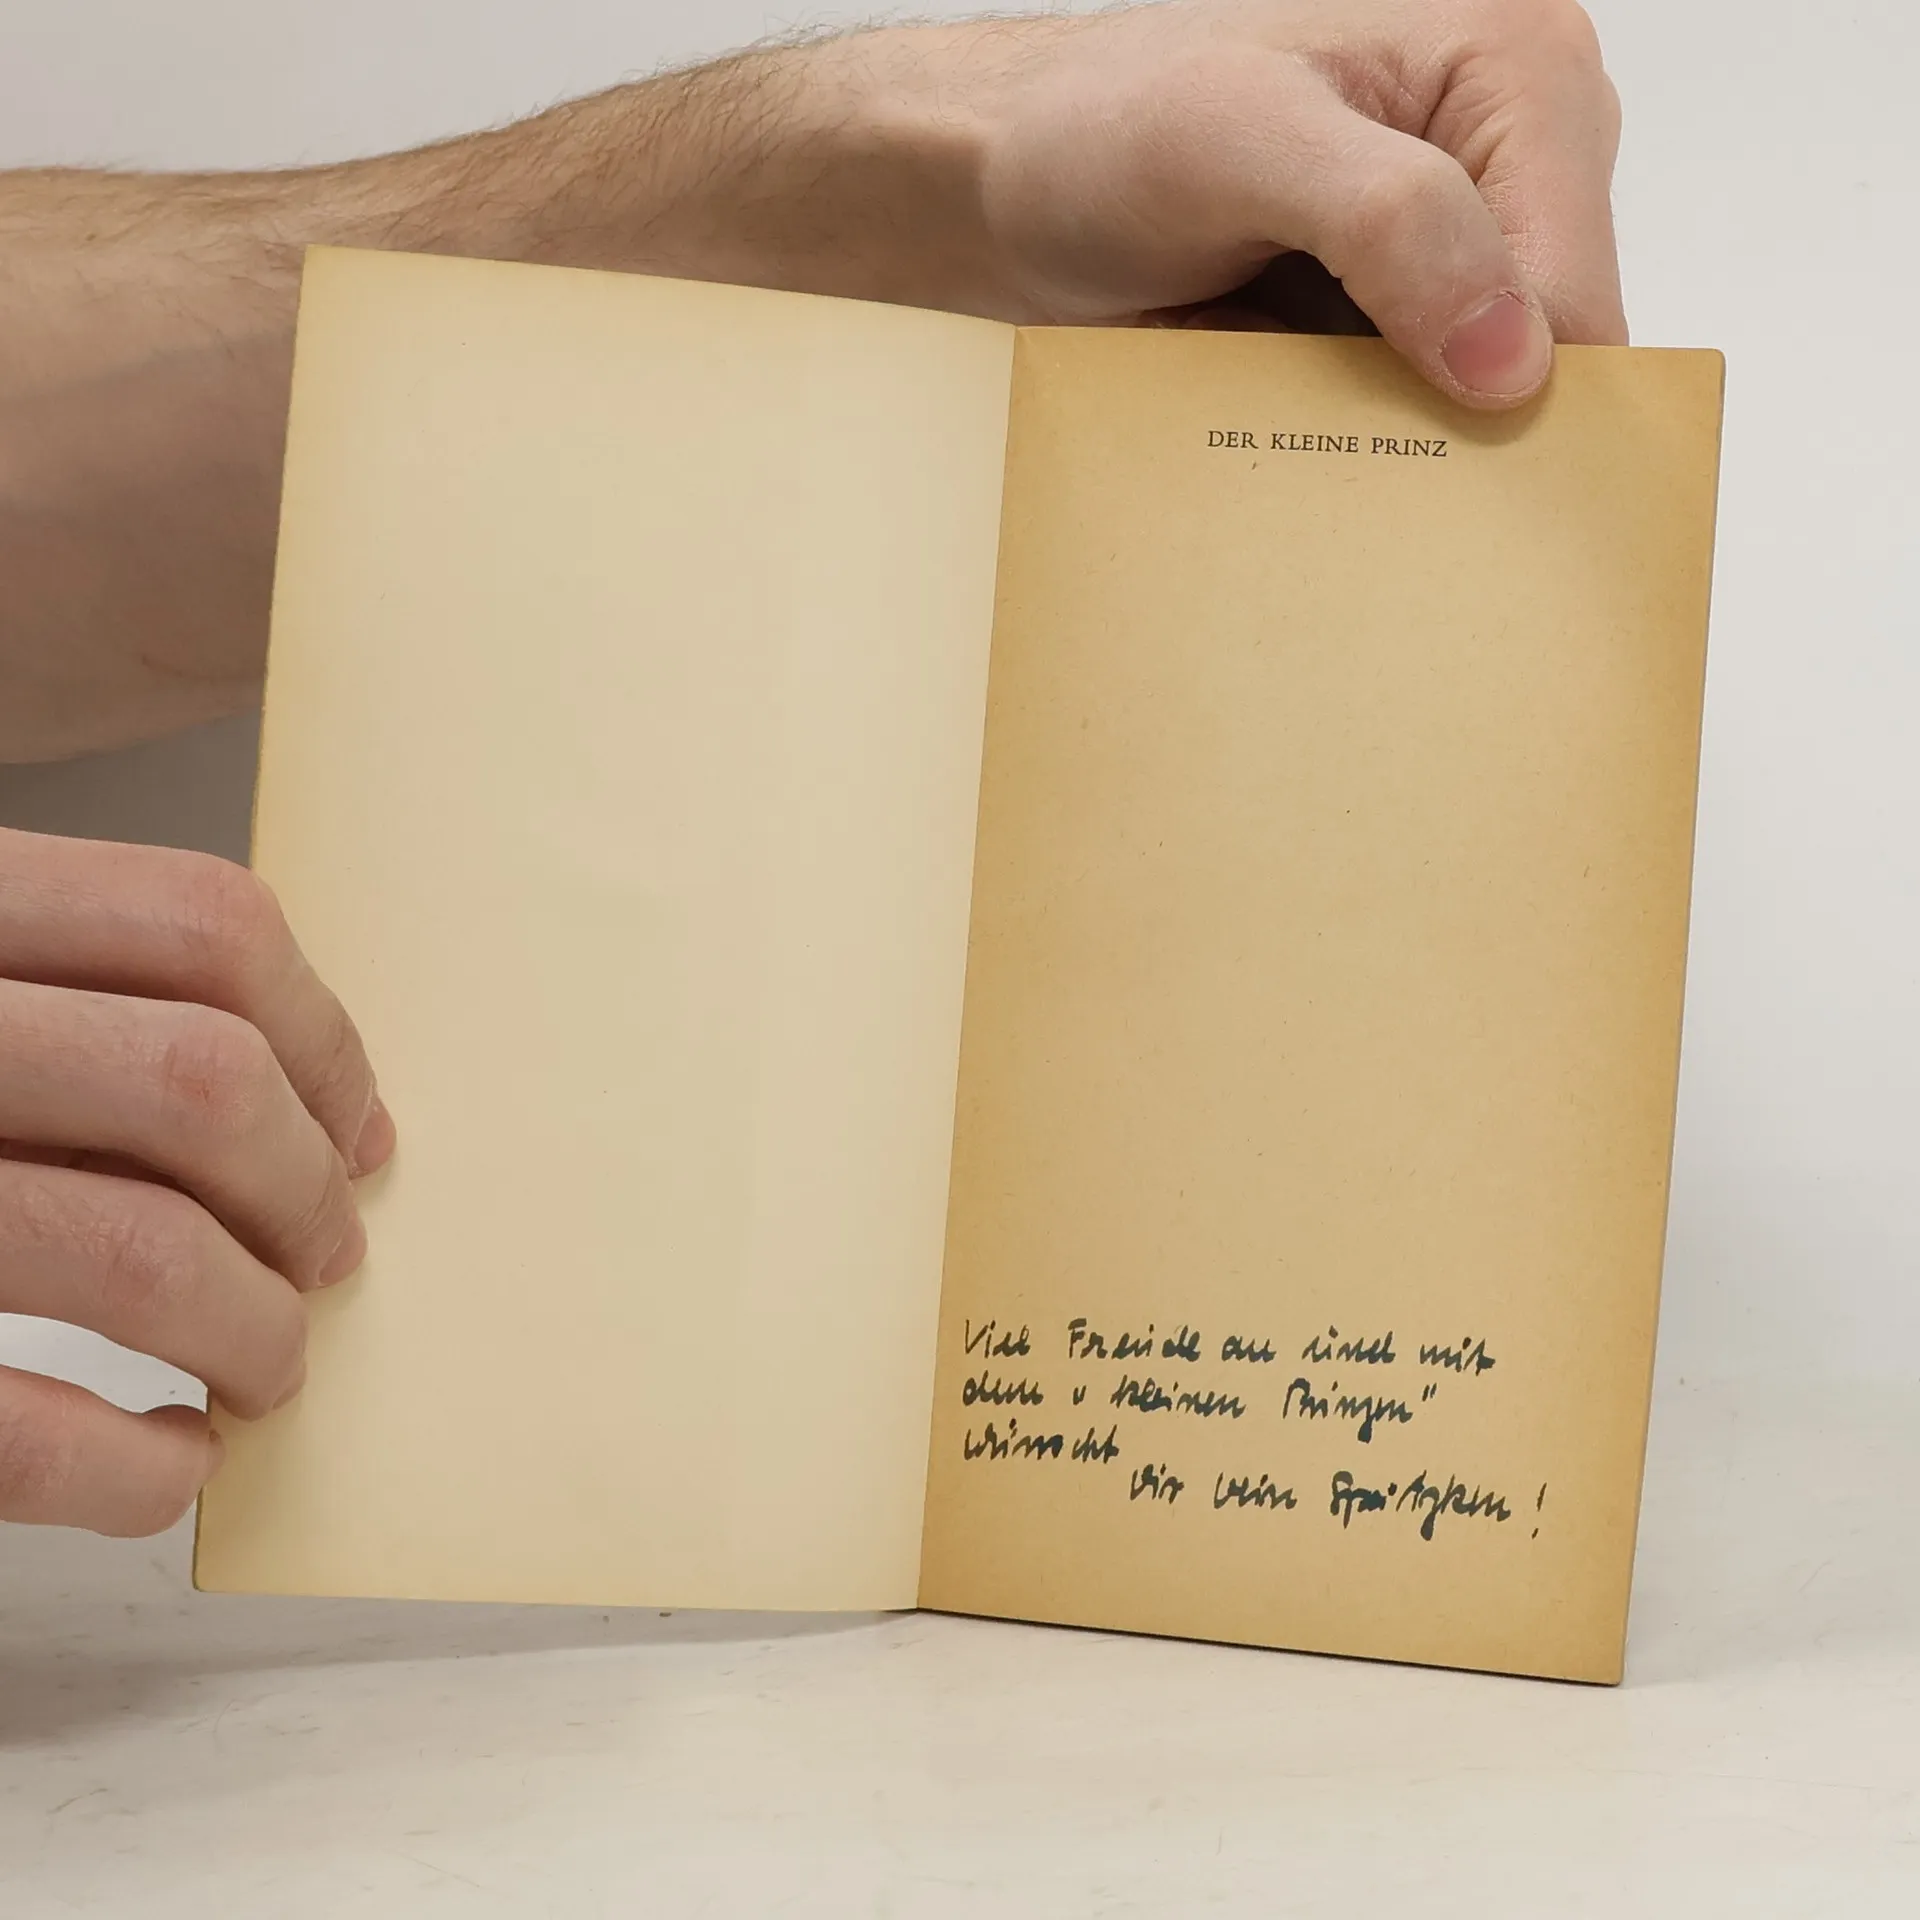 DER KLEINE PRINZ
Viel Freude an und mit
dem "kleinen Prinzen"
wünscht
Dir Dein